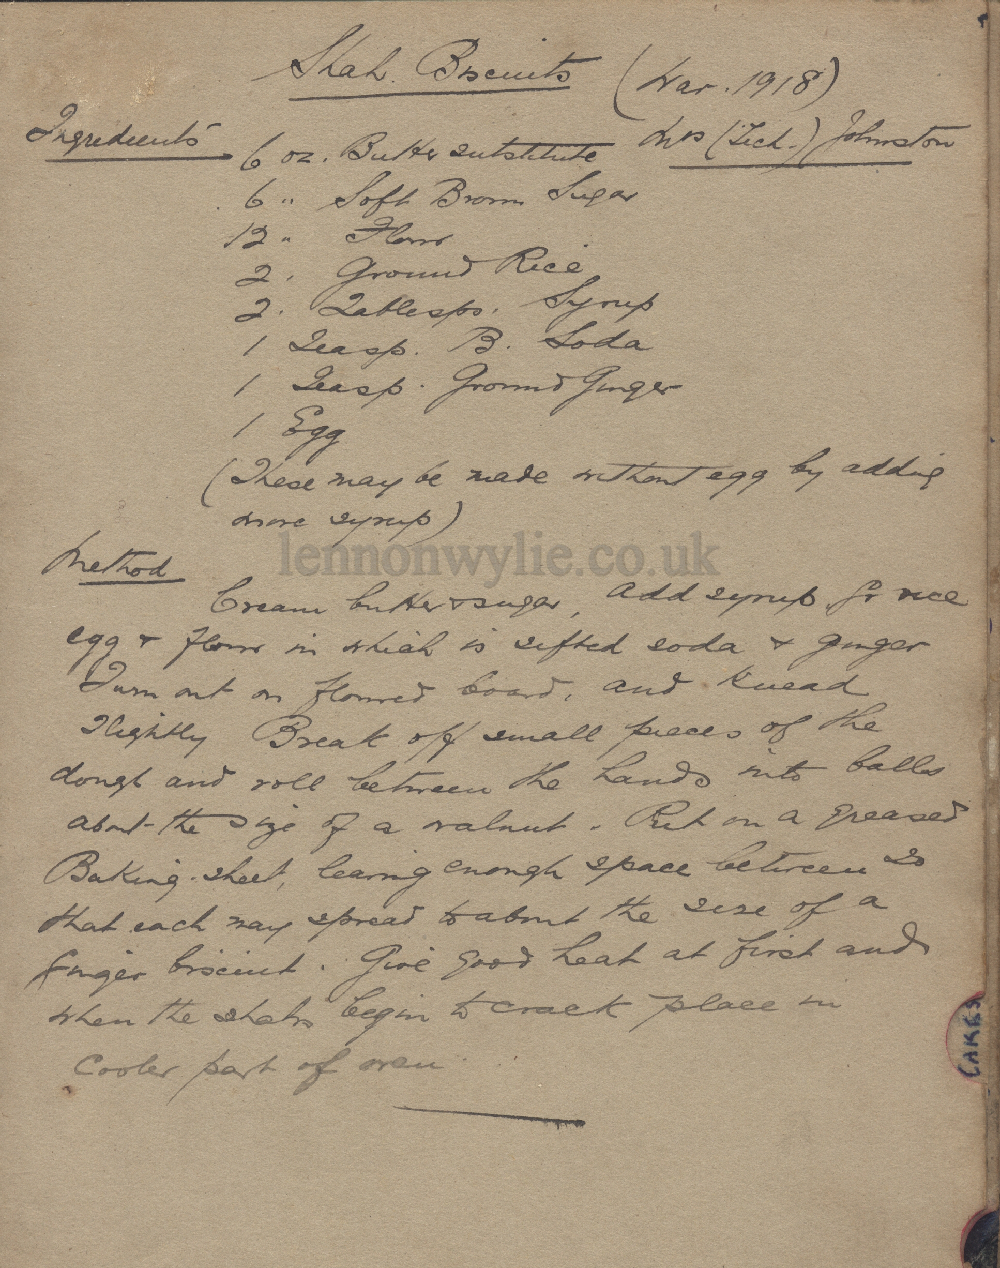 Shah. Biscuits (War. 1918)
Ingredients
Mrs (Tech.) Johnston
6 oz. Butter substitute
6 " Soft Brown Sugar
12 " Flour
2 . Ground Rice
2 . Tablesps. Syrup
1 Teasp. B. Soda
1 Teasp. Ground Ginger
1 Egg
(These may be made without egg by adding
more syrup)
lennonwylie.co.uk
Method
Cream butter & sugar, Add syrup Gr rice
egg & flour in which is sifted soda & ginger
Turn out on floured board, and knead
slightly Break off small pieces of the
dough and roll between the hands into balls
about the size of a walnut. Put on a greased
Baking. sheet, leaving enough space between so
that each may spread to about the size of a
ginger biscuit. Give good heat at first and
when the shahs begin to crack place in
cooler part of oven
CAKES